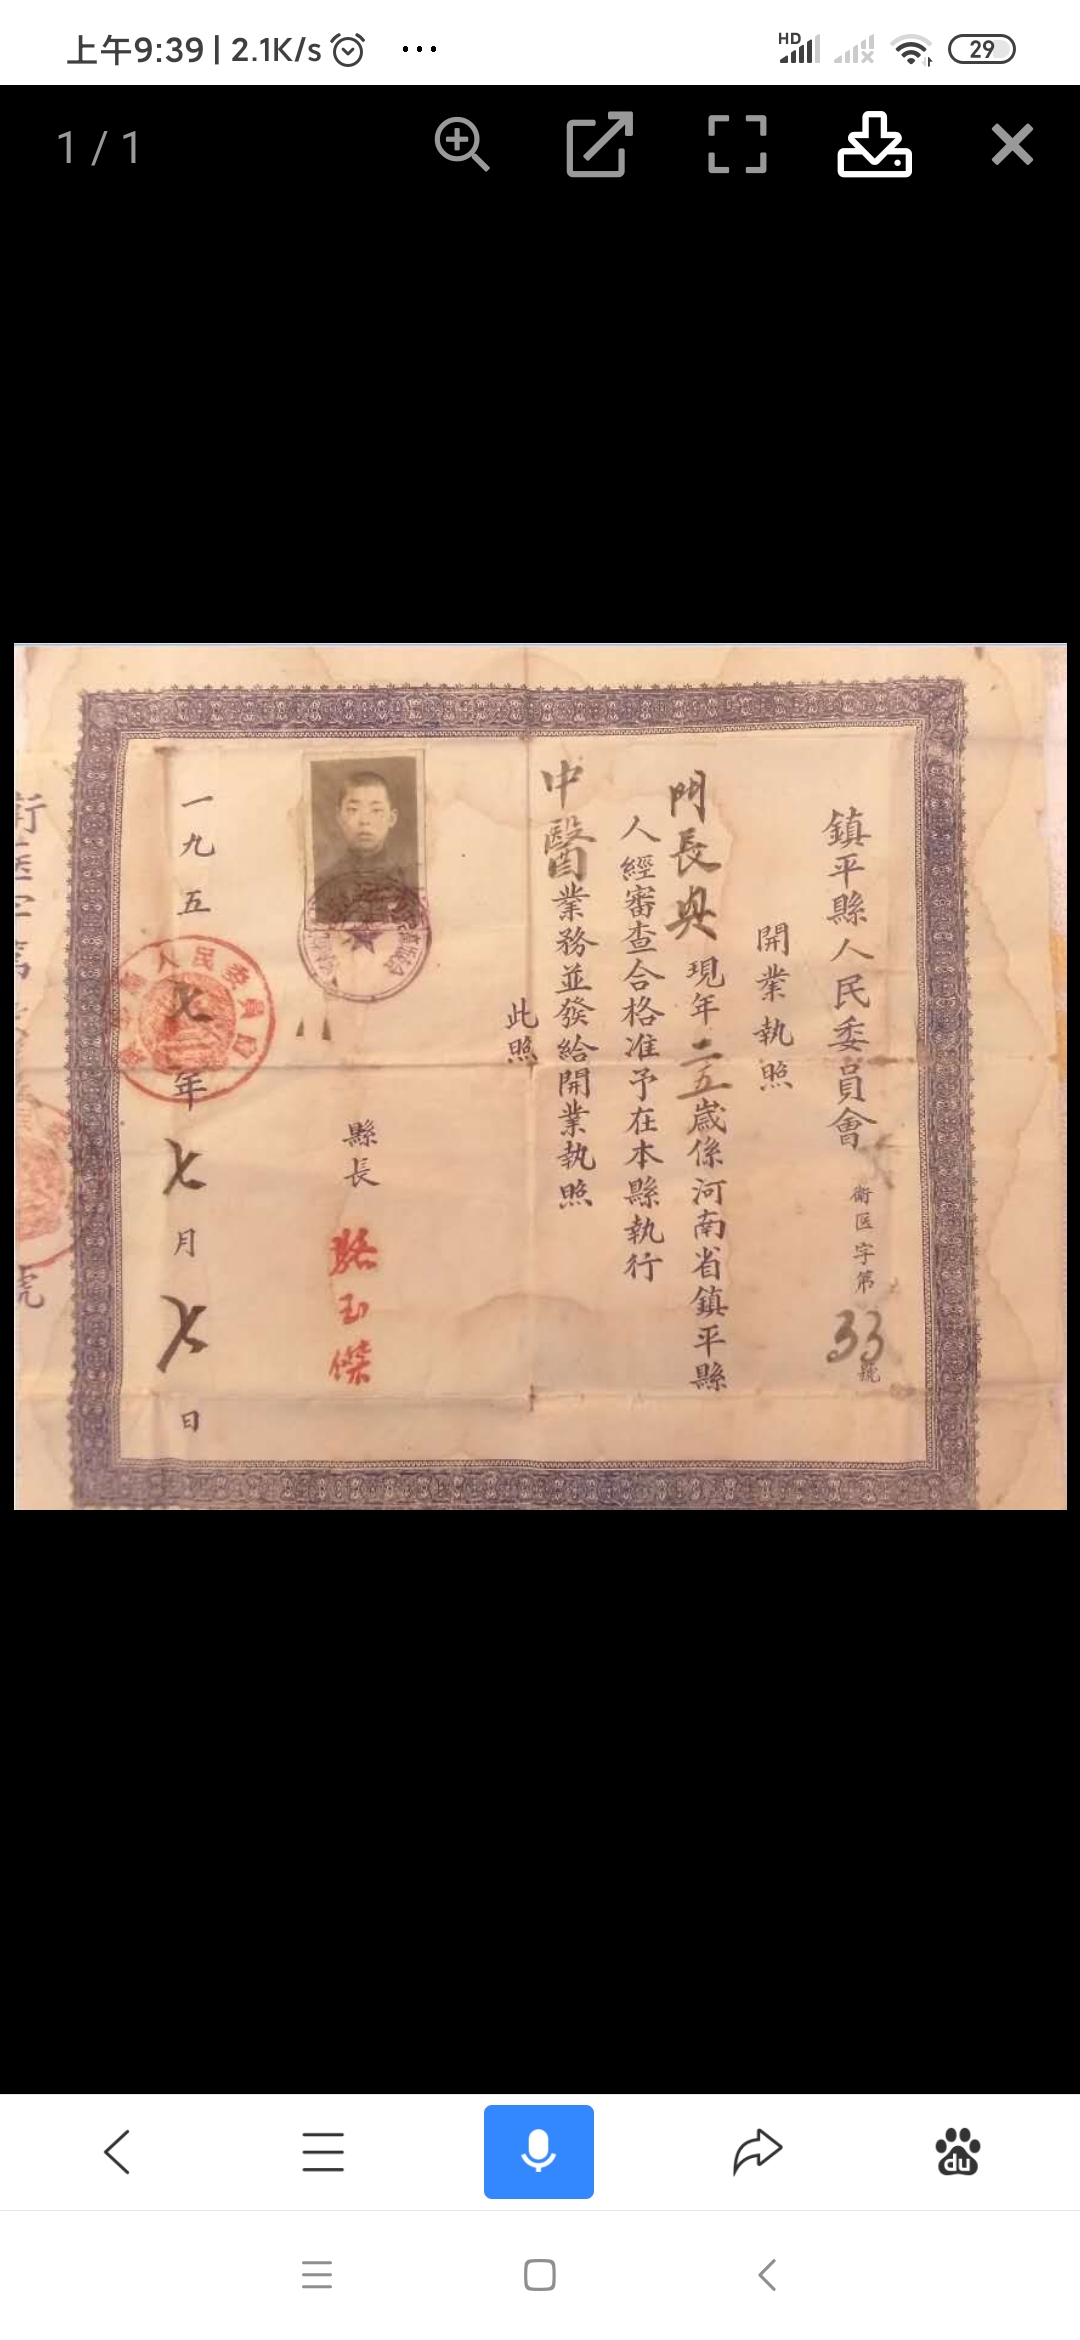 上午9:39 | 2.1K/s
HD
29
1 / 1
鎮平縣人民委員會
衛医字第33號
開業執照
門長典現年二五歲係河南省鎮平縣
人經審查合格准予在本縣執行
中醫業務並發給開業執照
此照
縣長
駱玉傑
一九五七年七月七日
人民委員會
du